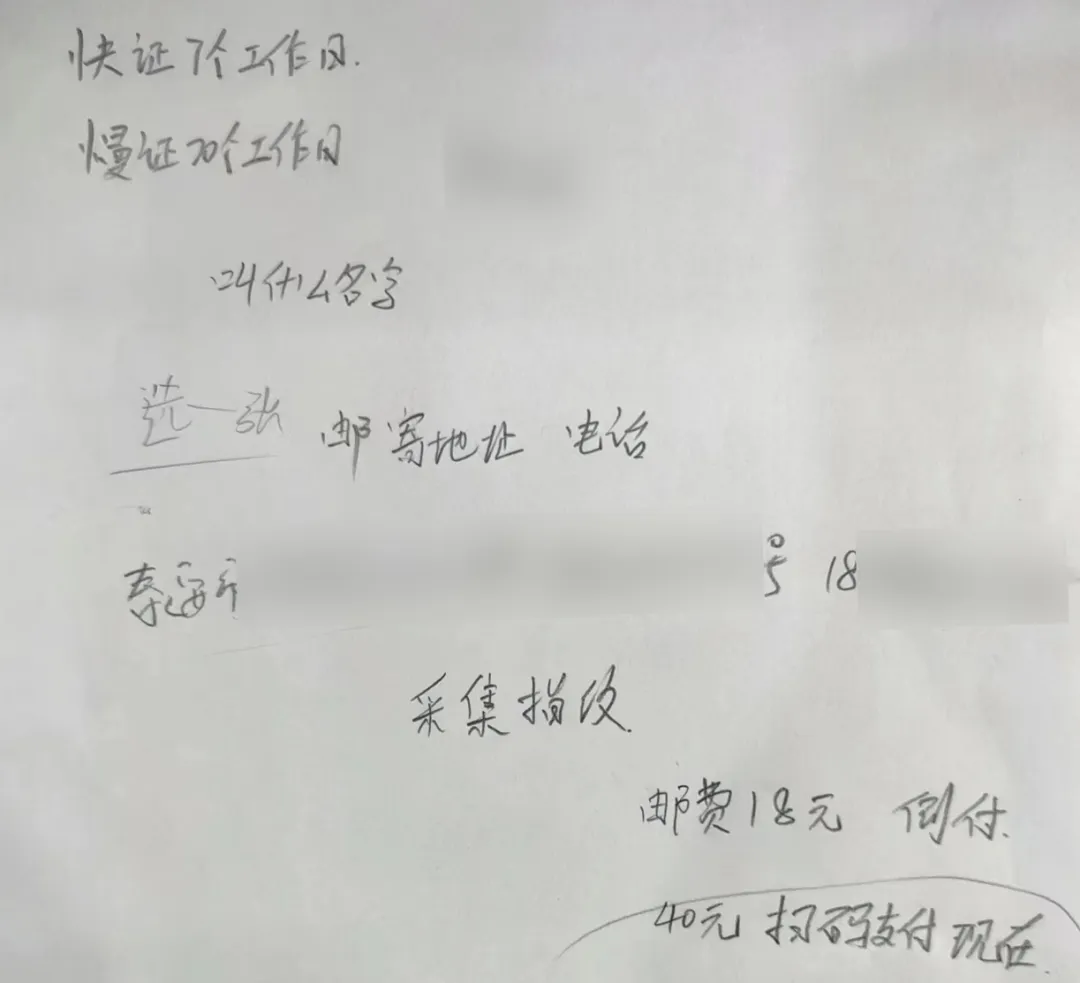 快证7个工作日.
慢证20个工作日
叫什么名字
选一张 邮寄地址 电话
泰安市 号 18
采集指纹.
邮费18元 倒付.
40元 扫码支付 现在.